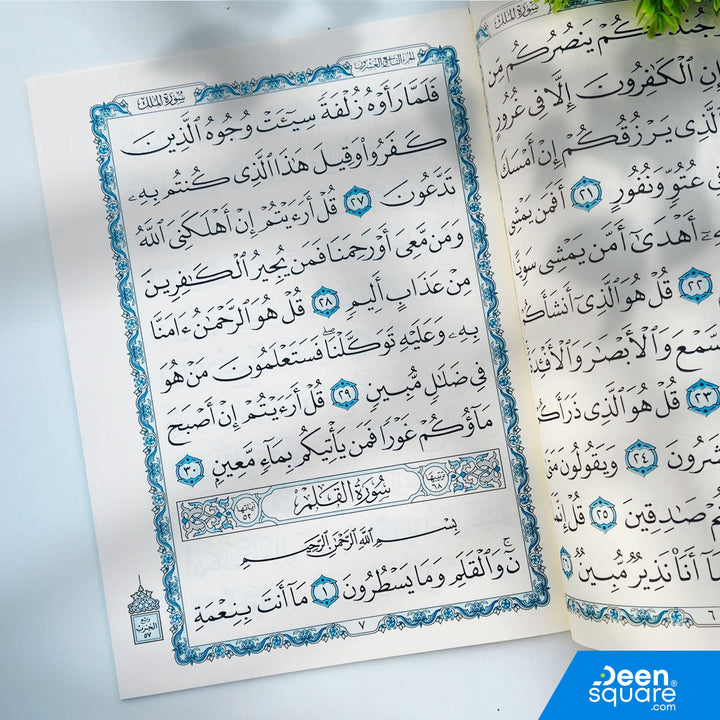 سورة الملك
الجزء التاسع والعشرون
فَلَمَّا رَأَوْهُ زُلْفَةً سِيٓـَٔتْ وُجُوهُ ٱلَّذِينَ
كَفَرُوا۟ وَقِيلَ هَـٰذَا ٱلَّذِى كُنتُم بِهِۦ
تَدَّعُونَ ٢٧ قُلْ أَرَءَيْتُمْ إِنْ أَهْلَكَنِىَ ٱللَّهُ
وَمَن مَّعِىَ أَوْ رَحِمَنَا فَمَن يُجِيرُ ٱلْكَـٰفِرِينَ
مِنْ عَذَابٍ أَلِيمٍ ٢٨ قُلْ هُوَ ٱلرَّحْمَـٰنُ ءَامَنَّا
بِهِۦ وَعَلَيْهِ تَوَكَّلْنَا ۖ فَسَتَعْلَمُونَ مَنْ هُوَ
فِى ضَلَـٰلٍ مُّبِينٍ ٢٩ قُلْ أَرَءَيْتُمْ إِنْ أَصْبَحَ
مَآؤُكُمْ غَوْرًا فَمَن يَأْتِيكُم بِمَآءٍ مَّعِينٍ ٣٠
ترتيبها ٦٨ سُورَةُ القَلَمِ آياتها ٥٢
بِسْمِ ٱللَّهِ ٱلرَّحْمَـٰنِ ٱلرَّحِيمِ
نٓ ۚ وَٱلْقَلَمِ وَمَا يَسْطُرُونَ ١ مَآ أَنتَ بِنِعْمَةِ
ربع
الحزب
٥٧
٧
سورة الملك
جُندٌ لَّكُمْ يَنصُرُكُم مِّن
إِنِ ٱلْكَـٰفِرُونَ إِلَّا فِى غُرُورٍ
ٱلَّذِى يَرْزُقُكُمْ إِنْ أَمْسَكَ
فِى عُتُوٍّ وَنُفُورٍ ٢١ أَفَمَن يَمْشِى
أَهْدَىٰٓ أَمَّن يَمْشِى سَوِيًّا
٢٢ قُلْ هُوَ ٱلَّذِىٓ أَنشَأَكُمْ
ٱلسَّمْعَ وَٱلْأَبْصَـٰرَ وَٱلْأَفْـِٔدَةَ
٢٣ قُلْ هُوَ ٱلَّذِى ذَرَأَكُمْ
تُحْشَرُونَ ٢٤ وَيَقُولُونَ مَتَىٰ
كُنتُمْ صَـٰدِقِينَ ٢٥ قُلْ إِنَّمَا
أَنَا۠ نَذِيرٌ مُّبِينٌ ٢٦
٦
Deen
square®
.com